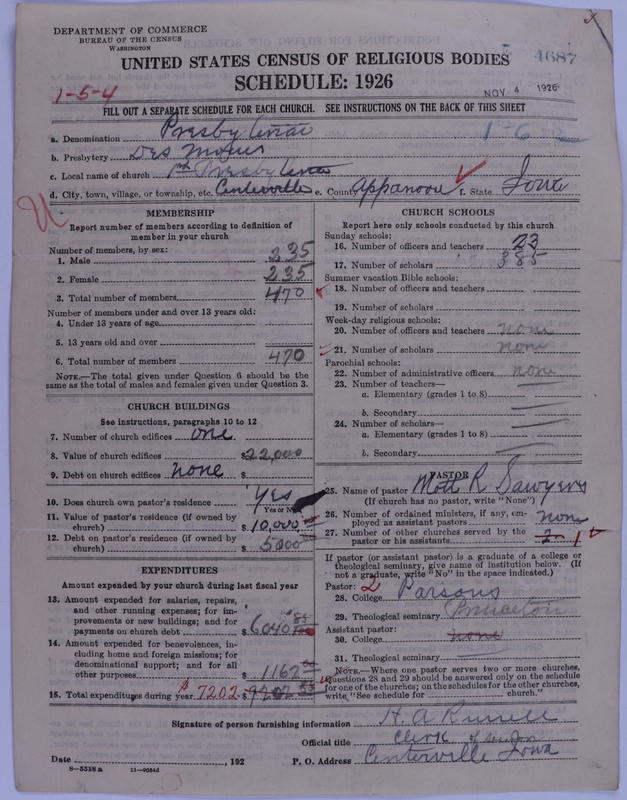 DEPARTMENT OF COMMERCE
BUREAU OF THE CENSUS
WASHINGTON
4687
UNITED STATES CENSUS OF RELIGIOUS BODIES
SCHEDULE: 1926
NOV 4 1926
1-5-4
FILL OUT A SEPARATE SCHEDULE FOR EACH CHURCH. SEE INSTRUCTIONS ON THE BACK OF THIS SHEET
a. Denomination Presbyterian
1-6
b. Presbytery Des Moines
c. Local name of church 1st Presbyterian
d. City, town, village, or township, etc. Centerville e. County Appanoose f. State Iowa
MEMBERSHIP
Report number of members according to definition of
member in your church
Number of members, by sex:
1. Male 235
2. Female 235
3. Total number of members 470
Number of members under and over 13 years old:
4. Under 13 years of age
5. 13 years old and over
6. Total number of members 470
NOTE.—The total given under Question 6 should be
same as the total of males and females given under Question 3.
CHURCH BUILDINGS
See instructions, paragraphs 10 to 12
7. Number of church edifices one
8. Value of church edifices $22,000
9. Debt on church edifices none $
10. Does church own pastor's residence Yes
Yes or No
11. Value of pastor's residence (if owned by
church) $10,000
12. Debt on pastor's residence (if owned by
church) $5000
EXPENDITURES
Amount expended by your church during last fiscal year
13. Amount expended for salaries, repairs,
and other running expenses; for im-
provements or new buildings; and for
payments on church debt $6040
14. Amount expended for benevolences, in-
cluding home and foreign missions; for
denominational support; and for all
other purposes $1162
15. Total expenditures during year $7202
CHURCH SCHOOLS
Report here only schools conducted by this church
Sunday schools:
16. Number of officers and teachers 23
17. Number of scholars 385
Summer vacation Bible schools:
18. Number of officers and teachers
19. Number of scholars
Week-day religious schools:
20. Number of officers and teachers none
21. Number of scholars none
Parochial schools:
22. Number of administrative officers none
23. Number of teachers—
a. Elementary (grades 1 to 8)
b. Secondary
24. Number of scholars—
a. Elementary (grades 1 to 8)
b. Secondary
PASTOR
25. Name of pastor Mott R Sawyers
(If church has no pastor, write "None")
26. Number of ordained ministers, if any, em-
ployed as assistant pastors none
27. Number of other churches served by the
pastor or his assistants 2 1
If pastor (or assistant pastor) is a graduate of a college or
theological seminary, give name of institution below. (If
not a graduate, write "No" in the space indicated.)
Pastor: 2
28. College Parsons
29. Theological seminary Princeton
Assistant pastor:
30. College none
31. Theological seminary
NOTE.—Where one pastor serves two or more churches,
Questions 28 and 29 should be answered only on the schedule
for one of the churches; on the schedules for the other churches,
write "See schedule for church."
Signature of person furnishing information H. A Russell
Official title Clerk of session
Date , 192 P. O. Address Centerville Iowa
8-5518a 11-9684d